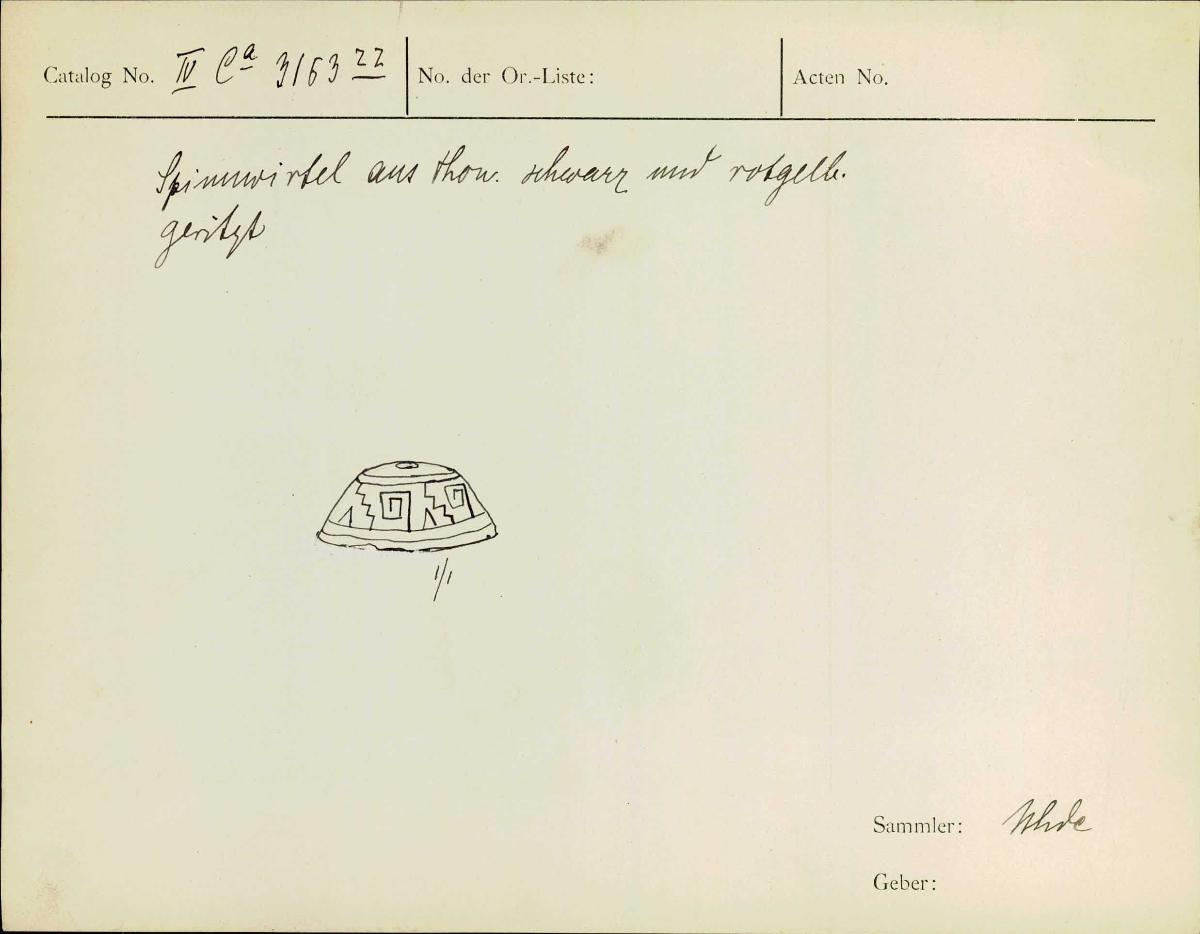 Catalog No. IV Ca 3163 22 No. der Or.-Liste: Acten No.
Spinnwirtel aus Thon. schwarz und rotgelb.
geritzt
1/1
Sammler: Uhde
Geber: